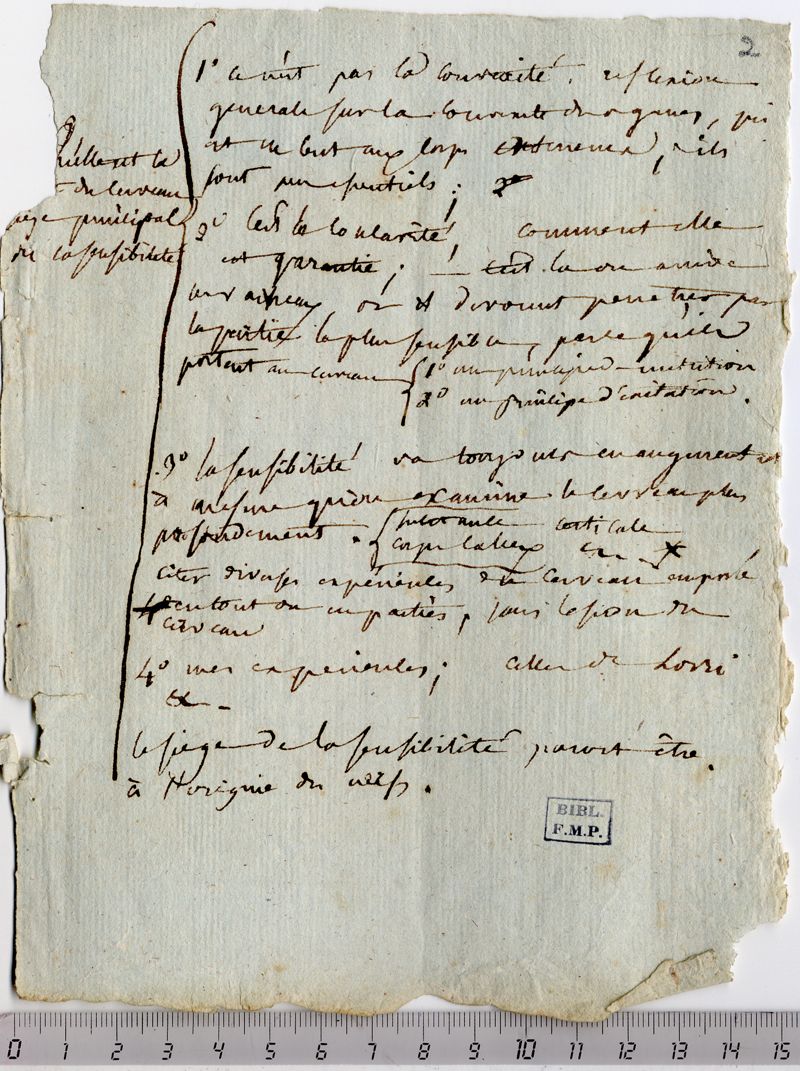 2
1° ce n'est pas la convexité. reflexion
generale sur la convexité des organes, qui
ont un but aux corps ils
sont non essentiels ;
2° c'est la cavité, comment elle
est garantie ; c'est la ou arrive
vaisseaux ou ils doivent penetrer par
la partie la plus sensible, parce qu'ils
portent au cerveau
1° un principe nutrition
2° un principe d'excitation.
quelle est la
du cerveau
siege principal
de la sensibilité
3° la sensibilité va toujours en augment
à mesure qu'on examine le cerveau plus
profondement.
substance corticale
corps calleux
citer diverses expériences du cerveau emporté
en tout ou en parties, sans lesion du
cerveau
4° mes expériences ; celles de Lorri
&c
le siège de la sensibilité paroit être
à l'origine des nerfs.
BIBL.
F.M.P.
0 1 2 3 4 5 6 7 8 9 10 11 12 13 14 15